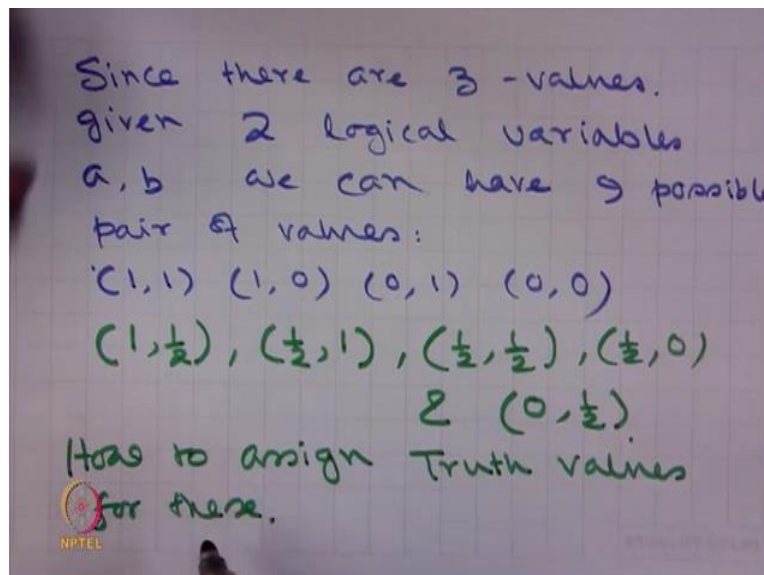 Since there are 3 - values.
given 2 logical variables
a, b we can have 9 possibl
pair of values:
(1,1) (1,0) (0,1) (0,0)
(1,½), (½,1), (½,½), (½,0)
& (0,½)
How to assign Truth values
for these.
NPTEL